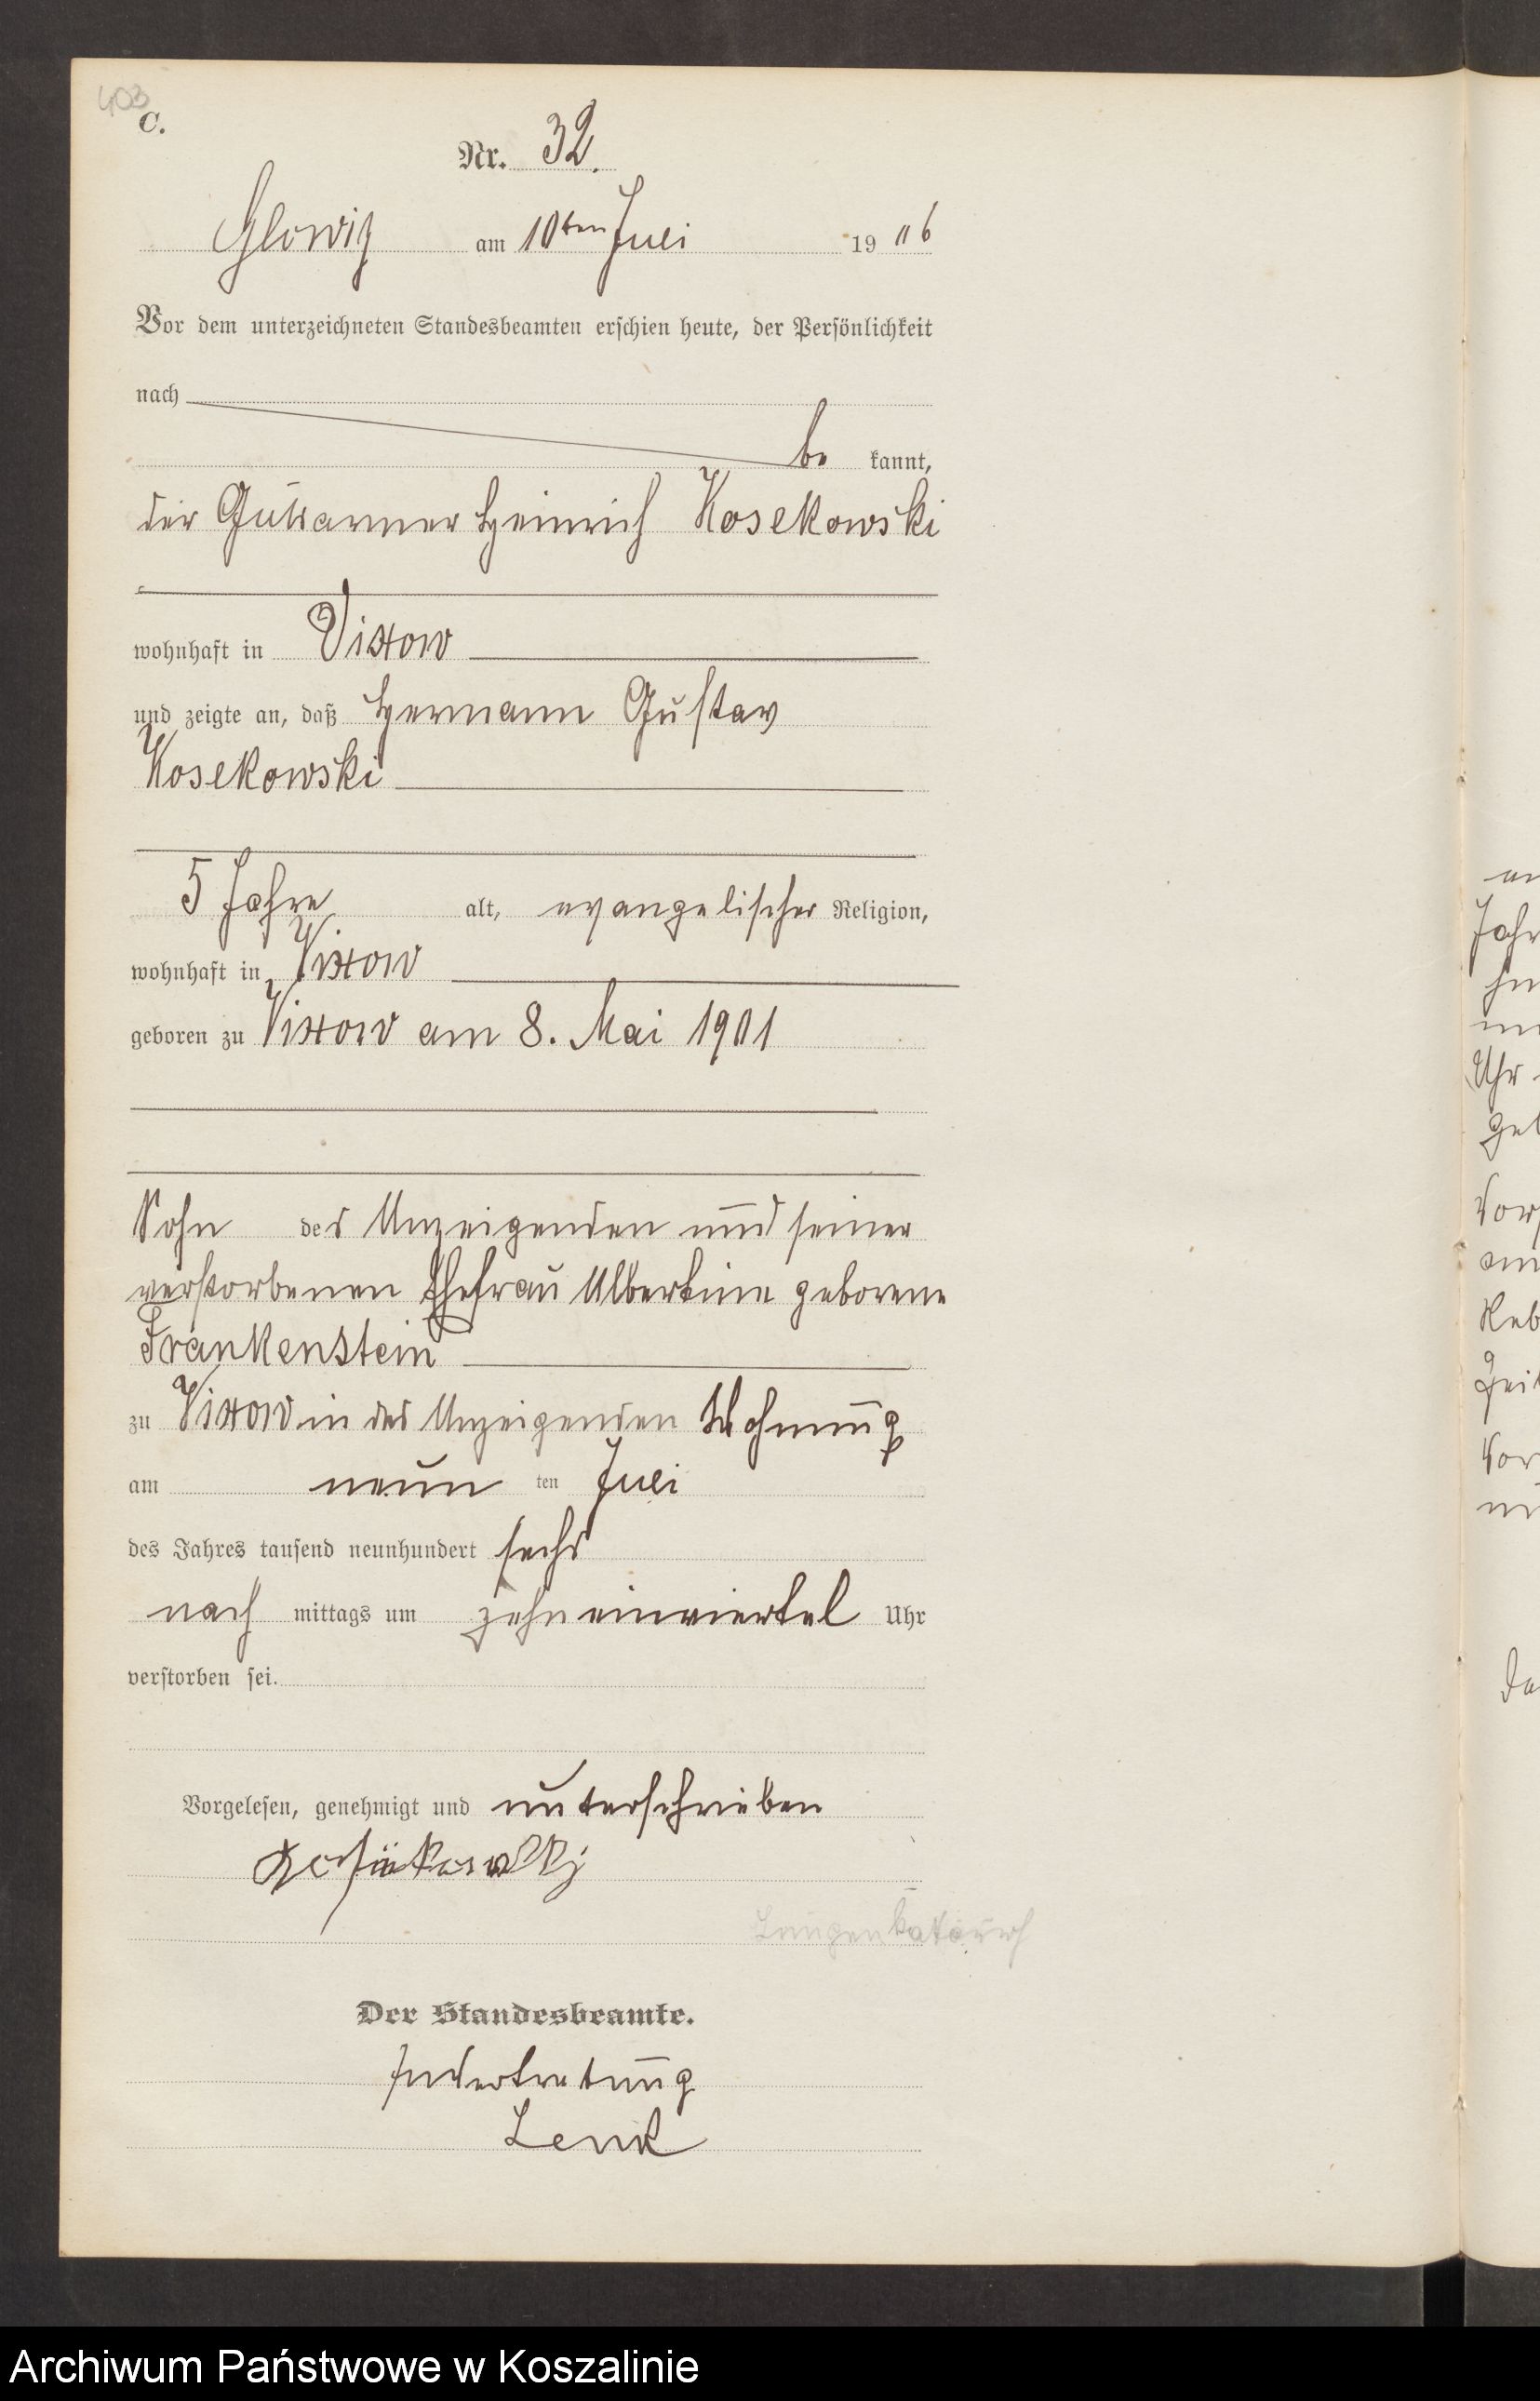 403
C.
Nr. 32.
Glowitz am 10ten Juli 1906
Vor dem unterzeichneten Standesbeamten erschien heute, der Persönlichkeit
nach
be kannt,
der Heinrich Kosekowski
wohnhaft in Vixow
und zeigte an, daß Hermann Gustav
Kosekowski
5 Jahre alt, evangelischer Religion,
wohnhaft in Vixow
geboren zu Vixow am 8. Mai 1901
Sohn des Anzeigenden und seiner
verstorbenen Ehefrau Albertine geborene
Frankenstein
zu Vixow in des Anzeigenden Wohnung
am neun ten Juli
des Jahres tausend neunhundert sechs
nach mittags um zehn einviertel Uhr
verstorben sei.
Vorgelesen, genehmigt und unterschrieben
Lungenkatarrh
Der Standesbeamte.
In Vertretung
Lenk
Archiwum Państwowe w Koszalinie